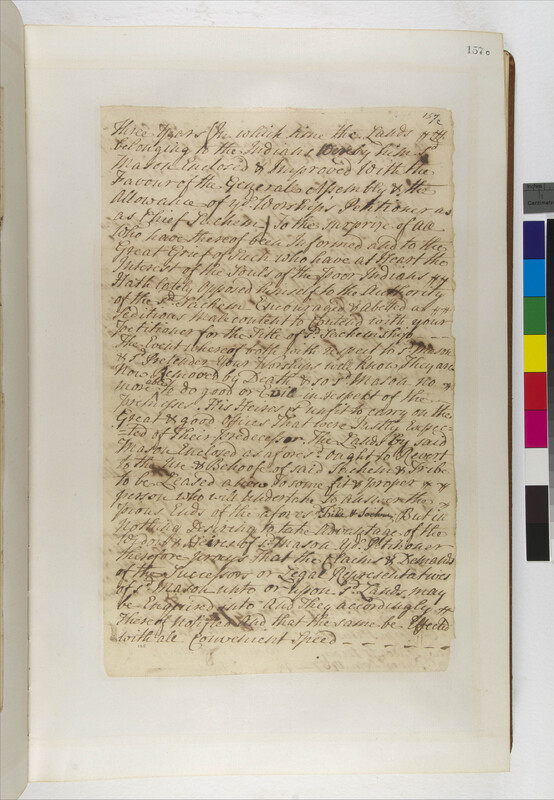 157c
157/c
three Years (In which time the Lands &c
belonging to the Indians were by him sd
Mason Enclosed & Improved With the
Favour of the General Assembly & the
Allowance of yr Worships Petitioner as
as Chief Sachem) To the Surprize of all
Who have thereof been Informed and to the
Great Grief of Such who have at Heart the
Interest of the Souls of the Poor Indians
Hath lately Opposed himself to the Authority
of the sd Sachem Encouraged & Abetted a
Seditious Malecontent to Contend with your
Petitioner for the Title of sd Sachemship
The Event whereof both with respect to sd Mason
& sd Pretender Your Worships well know, They are
Now Removed by Death & so sd Mason no
more able to do good or Evil in respect of the
Premisses. His Heires is unfit to carry on the
Great & good Offices That were Justly Expec-
ted of Their Predecessor. The Lands by said
Mason Enclosed as aforesd ought to Revert
to the Use & Behoofe of said Sachem & Tribe
to be Leased anew to some fit & proper &
person who will undertake to answer the
pious Ends of the afores Tribe & Sachem, But in
Nothing desiring to take Advantage of the
Widdow & Heires of sd Mason Yr Petitioner
therefore prays That the Claims & Demands
of the Successors or Legal Representatives
of sd Mason unto or Upon sd Lands, may
be Enquired into And They accordingly
Thereof notified And that the same be Effected
with all Convenient Speed